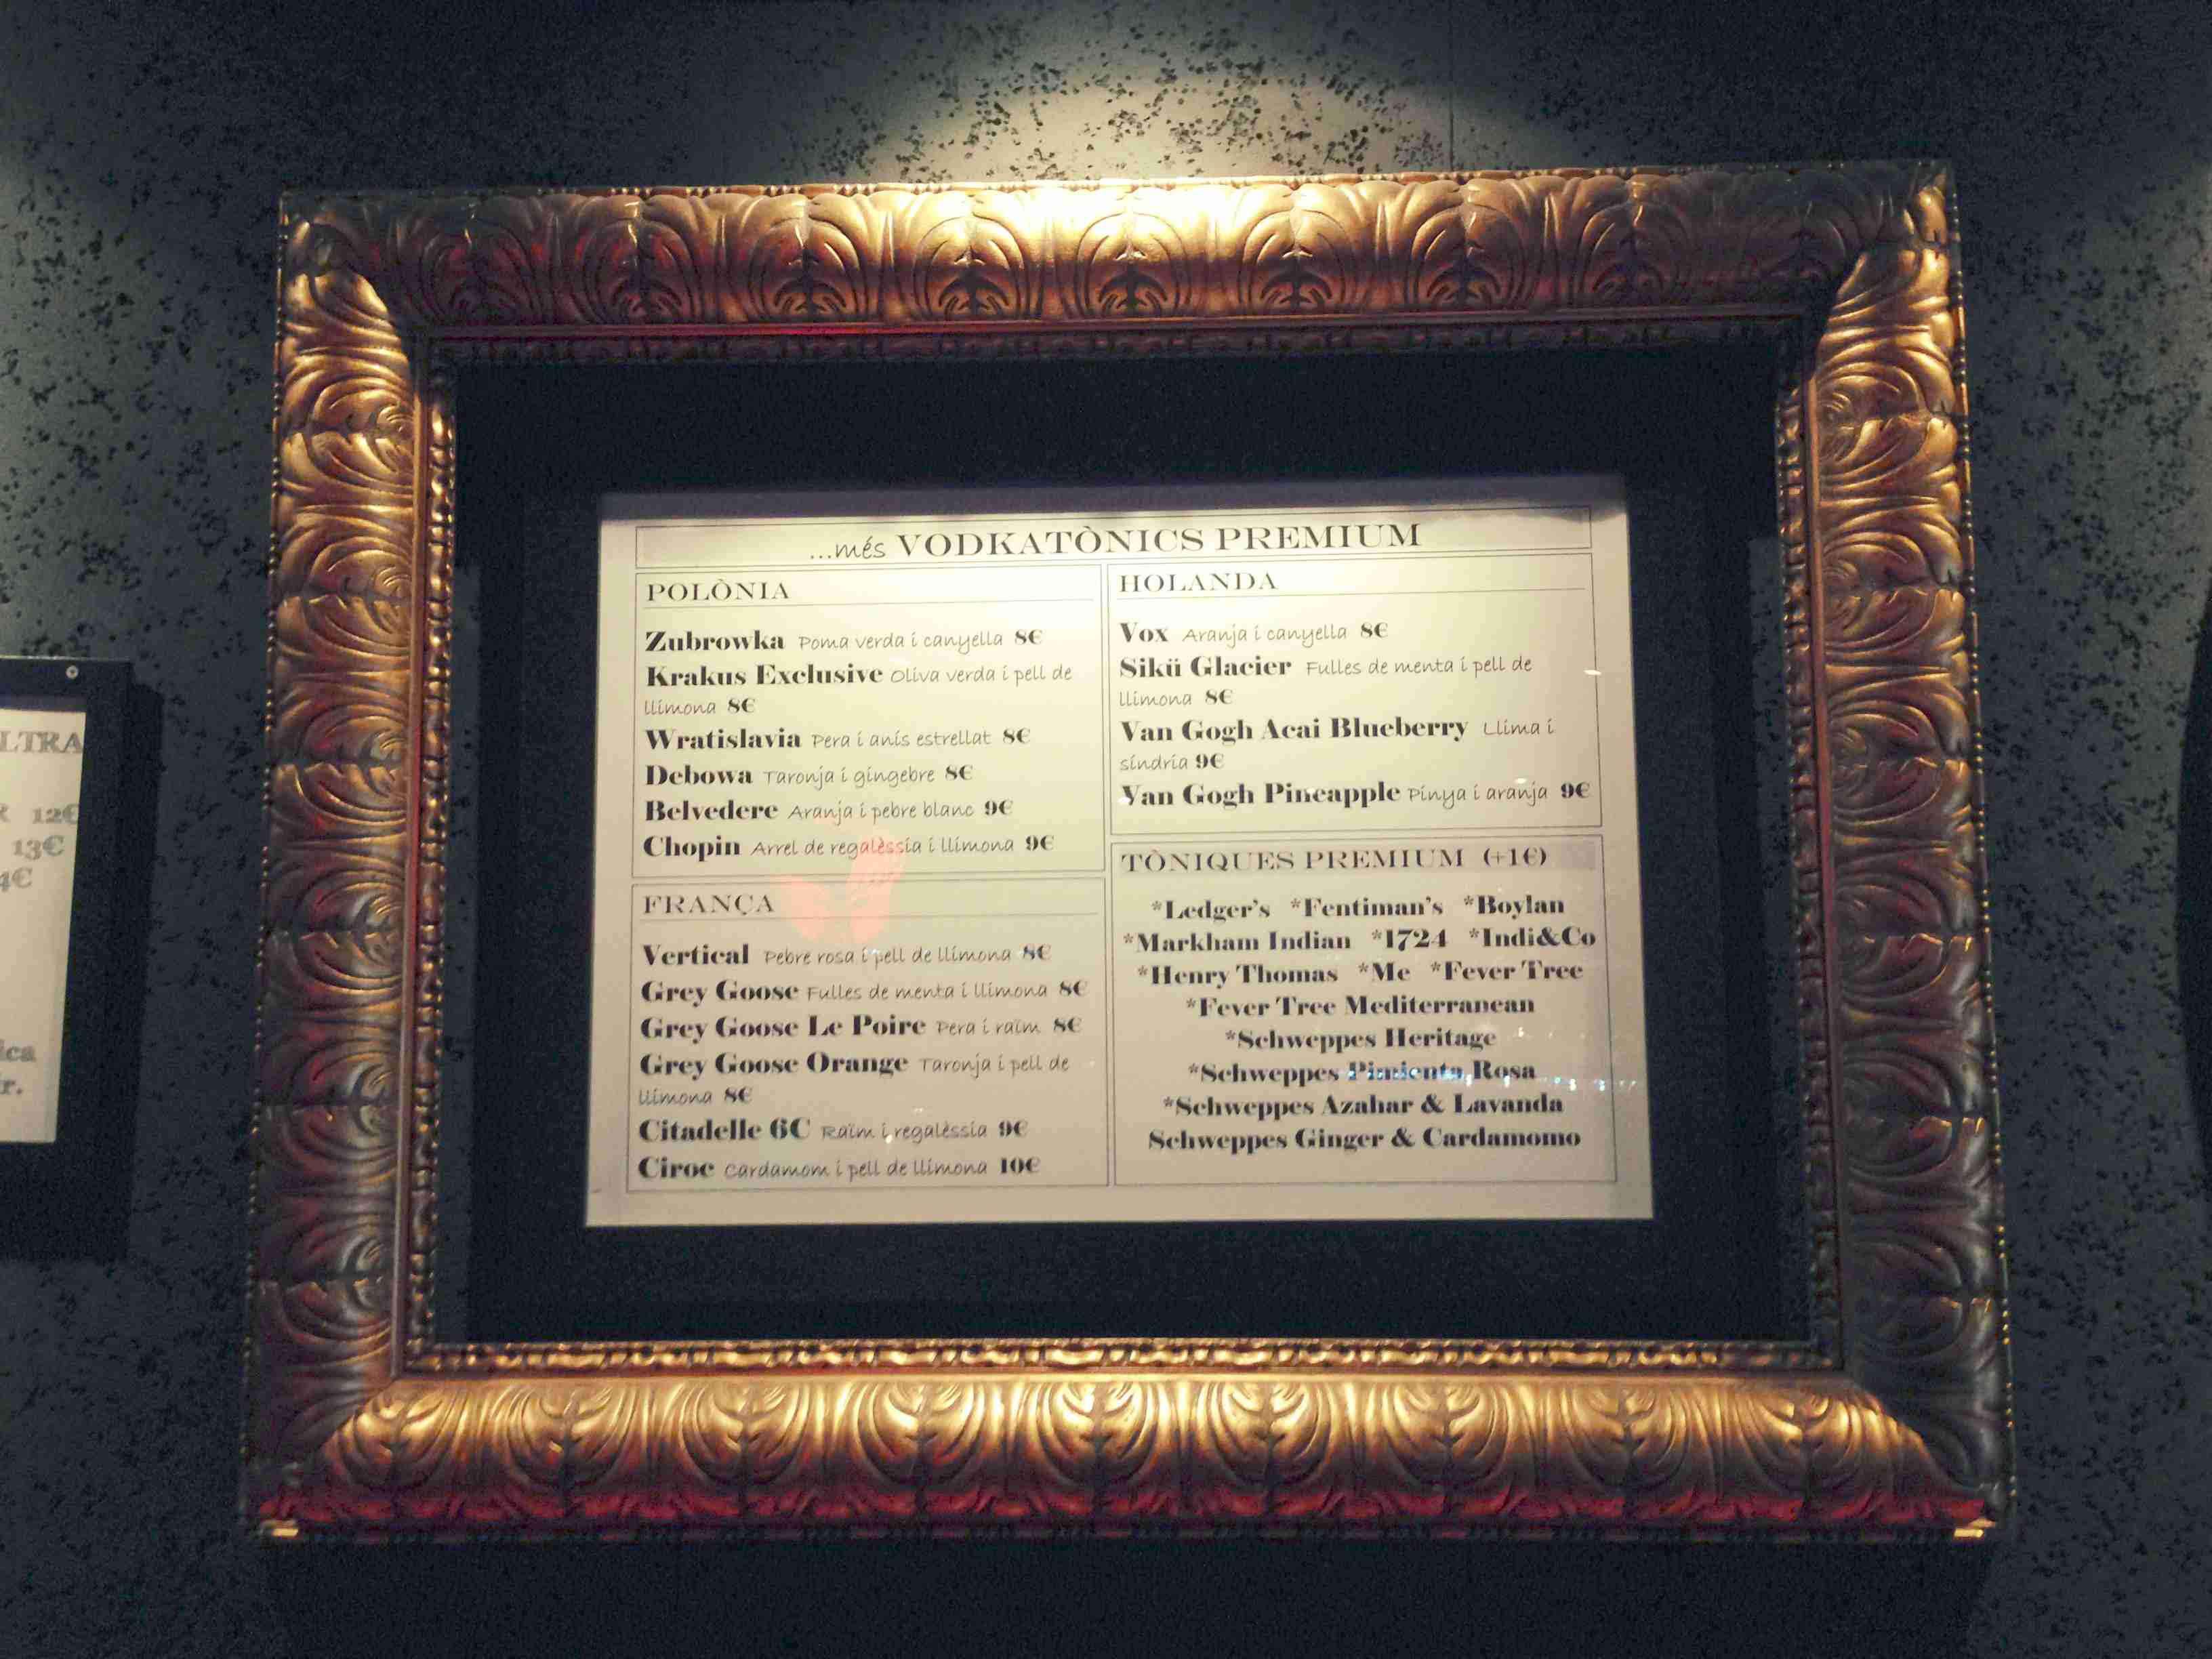 ...més VODKATÒNICS PREMIUM
POLÒNIA
Zubrowka Poma verda i canyella 8€
Krakus Exclusive Oliva verda i pell de
llimona 8€
Wratislavia Pera i anís estrellat 8€
Debowa Taronja i gingebre 8€
Belvedere Aranja i pebre blanc 9€
Chopin Arrel de regalèssia i llimona 9€
FRANÇA
Vertical Pebre rosa i pell de llimona 8€
Grey Goose Fulles de menta i llimona 8€
Grey Goose Le Poire Pera i raïm 8€
Grey Goose Orange Taronja i pell de
llimona 8€
Citadelle 6C Raïm i regalèssia 9€
Ciroc Cardamom i pell de llimona 10€
HOLANDA
Vox Aranja i canyella 8€
Sikü Glacier Fulles de menta i pell de
llimona 8€
Van Gogh Acai Blueberry Llima i
síndria 9€
Van Gogh Pineapple Pinya i aranja 9€
TÒNIQUES PREMIUM (+1€)
*Ledger's *Fentiman's *Boylan
*Markham Indian *1724 *Indi&Co
*Henry Thomas *Me *Fever Tree
*Fever Tree Mediterranean
*Schweppes Heritage
*Schweppes Pimienta Rosa
*Schweppes Azahar & Lavanda
Schweppes Ginger & Cardamomo
LTRA
12€
13€
4€
ica
r.